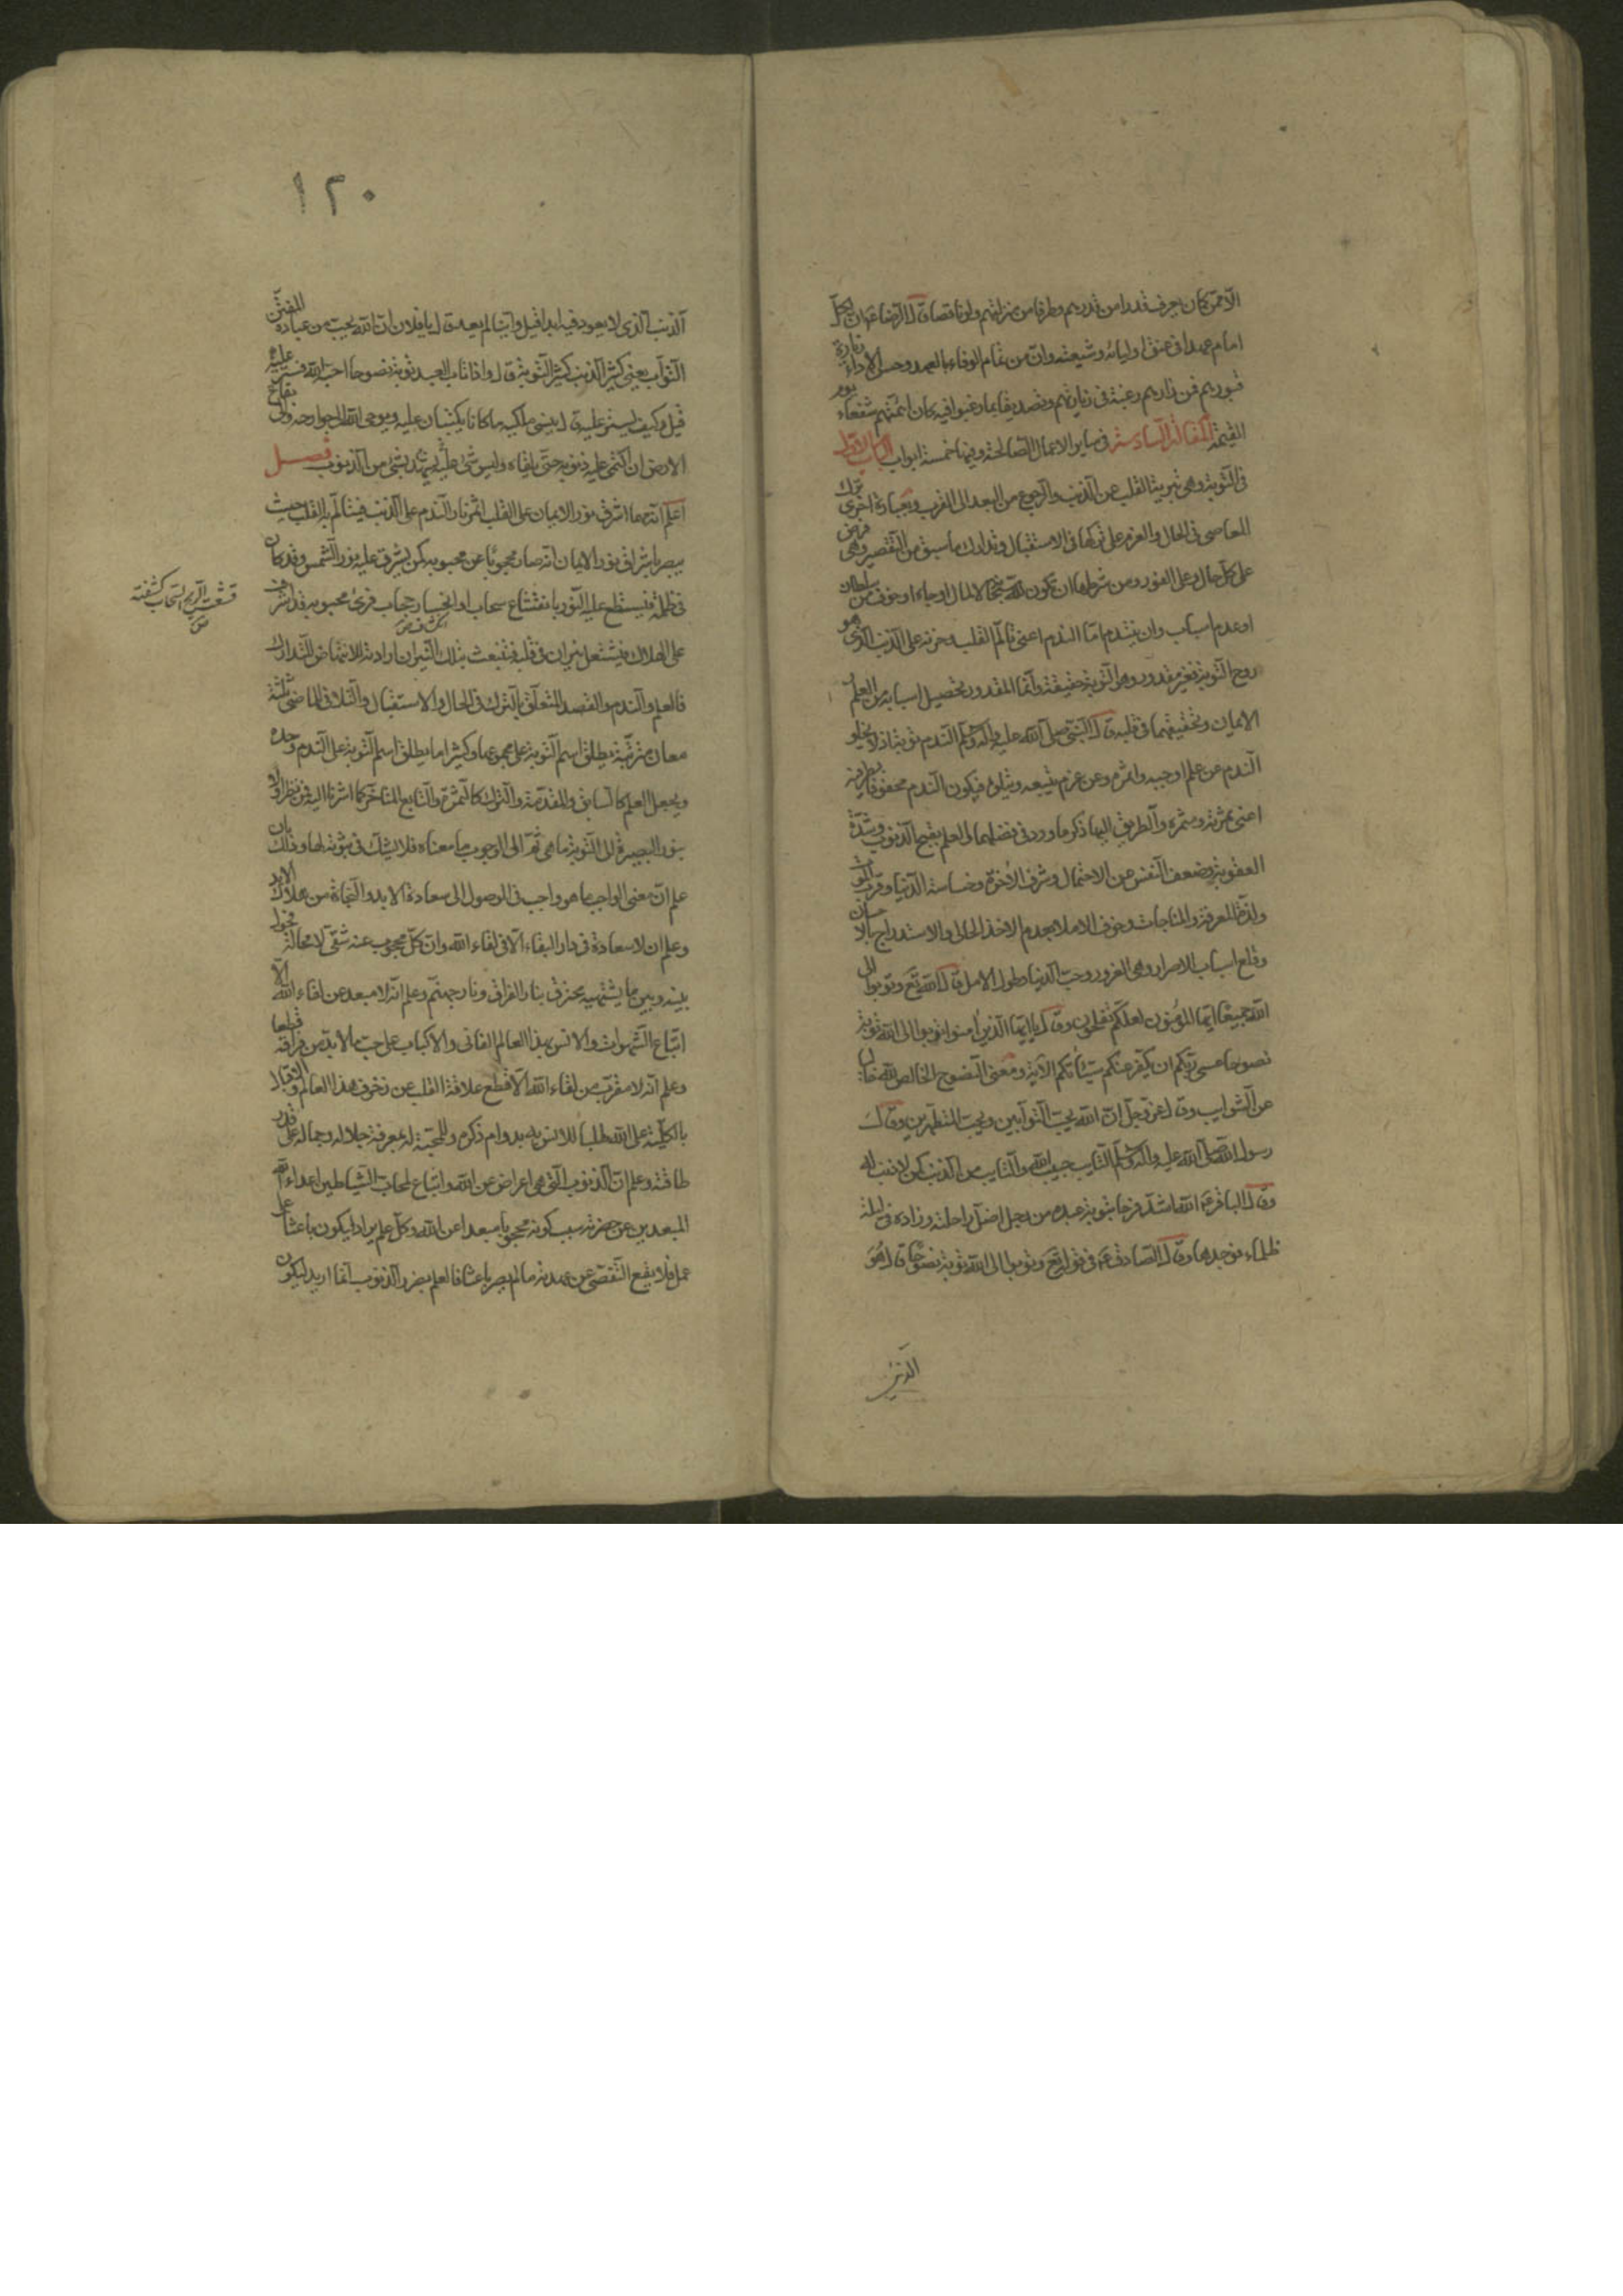 الا ممن كان يعرف قدرا من قدرهم وطرفا من منزلتهم ولو ناقصا قال الرضا ع ان لكل
امام عهدا في عنق اوليائه وشيعته وان من تمام الوفاء بالعهد وحسن الاداء زيارة
قبورهم فمن زارهم رغبة في زيارتهم وتصديقا بما رغبوا فيه كان ائمتهم شفعاءهم يوم
القيمة المقالة السادسة في ساير الاعمال الصالحة وفيها خمسة ابواب الباب الاول
في التوبة وهى تبرئة القلب عن الذنب والرجوع من البعد الى القرب وبعبارة اخرى ترك
المعاصى في الحال والعزم على تركها في الاستقبال وتدارك ما سبق من التقصير وهى فرض
على كل حال وعلى الفور ومن شرطها ان تكون لله سبحانه لا لمال او جاه او خوف من سلطان
او عدم اسباب وان يتندم اما الندم اعنى تألم القلب وحزنه على الذنب الذى هو
روح التوبة فغير مقدور وهو التوبة حقيقة وانما المقدور تحصيل اسبابه من العلم و
الايمان وتحقيقهما في قلبه قال النبى صلى الله عليه واله وسلم الندم توبة اذ لا يخلو
الندم عن علم اوجبه واثمره وعن عزم يتبعه ويتلوه فيكون الندم محفوفا بطرفيه
اعنى ثمرته ومثمره والطريق اليها ذكر ما ورد في فضلها والعلم بقبح الذنوب وشدة
العقوبة وضعف النفس من الاحتمال وشرف الاخرة وخساسة الدنيا وقرب الموت
ولذة المعرفة والمناجات وخوف الاملاء بعدم الاخذ الحالى والاستدراج بالاحسان
وقلع اسباب الاصرار وهى الغرور وحب الدنيا وطول الامل قال الله تع وتوبوا الى
الله جميعا ايها المؤمنون لعلكم تفلحون وقال يا ايها الذين امنوا توبوا الى الله توبة
نصوحا عسى ربكم ان يكفر عنكم سيئاتكم الاية ومعنى النصوح الخالص لله خاليا
عن الشوايب وقال عز وجل ان الله يحب التوابين ويحب المتطهرين وقال
رسول الله صلى الله عليه واله وسلم التايب حبيب الله والتايب من الذنب كمن لا ذنب له
وقال الباقر ع الله اشد فرحا بتوبة عبده من رجل اضل راحلته وزاده في ليلة
ظلماء فوجدها وقال الصادق ع في قوله تع وتوبوا الى الله توبة نصوحا قال هو
الذنب
١٢٠
الذنب الذى لا يعود فيه ابدا قيل واينا لم يعد قال يا فلان ان الله يحب من عباده المفتن
التواب يعنى كثير الذنب كثير التوبة وقال واذا تاب العبد توبة نصوحا احبه الله فستر عليه
قيل وكيف يستر عليه قال ينسى ملكيه ما كانا يكتبان عليه ويوحى الله الى جوارحه والى بقاع
الارض ان اكتمى عليه ذنوبه حتى يلقاه وليس شىء عليه يشهد بشىء من الذنوب فصل
اعلم انه مهما اشرق نور الايمان على القلب اثمر نار الندم على الذنب فيتألم به القلب حيث
يبصر باشراق نور الايمان انه صار محجوبا عن محبوبه كمن يشرق عليه نور الشمس وقد كان
في ظلمة فيسطع عليه النور بانقشاع سحاب او انحسار حجاب فرأى محبوبه قد اشرف
على الهلاك فيشتعل نيران في قلبه فتنبعث بتلك النيران ارادته للانتهاض للتدارك
فالعلم والندم والقصد المتعلق بالترك في الحال والاستقبال والتلافى للماضى ثلثة
معان مترتبة يطلق اسم التوبة على مجموعها وكثيرا ما يطلق اسم التوبة على الندم وحده
ويجعل العلم كالسابق والمقدمة والترك كالثمرة والتابع المتاخر كما اشرنا اليه فمن نظر اولا
بنور البصيرة الى التوبة ما هى ثم الى الوجوب ما معناه فلا يشك في ثبوته لها وذلك بان
علم ان معنى الواجب ما هو واجب في الوصول الى سعادة الابد والنجاة من هلاك الابد
وعلم ان لا سعادة في دار البقاء الا في لقاء الله وان كل محجوب عنه شقى لا محالة محول
بينه وبين ما يشتهيه محترق بنار الفراق ونار جهنم وعلم انه لا مبعد عن لقاء الله الا
اتباع الشهوات والانس بهذا العالم الفانى والاكباب على حب ما لا بد من فراقه قطعا
وعلم انه لا مقرب من لقاء الله الا قطع علاقة القلب عن زخرف هذا العالم والاقبال
بالكلية على الله طلبا للانس به بدوام ذكره وللمحبة له بمعرفة جلاله وجماله على قدر
طاقته وعلم ان الذنوب التى هى اعراض عن الله واتباع لمحاب الشياطين اعداء الله
المبعدين عن حضرته سبب كونه محجوبا مبعدا عن الله وكل علم يراد ليكون باعثا على
عمل فلا يقع التفصى عن عهدته ما لم يصر باعثا فالعلم بضرر الذنوب انما اريد ليكون
قشعت الريح السحاب كشفته
ص